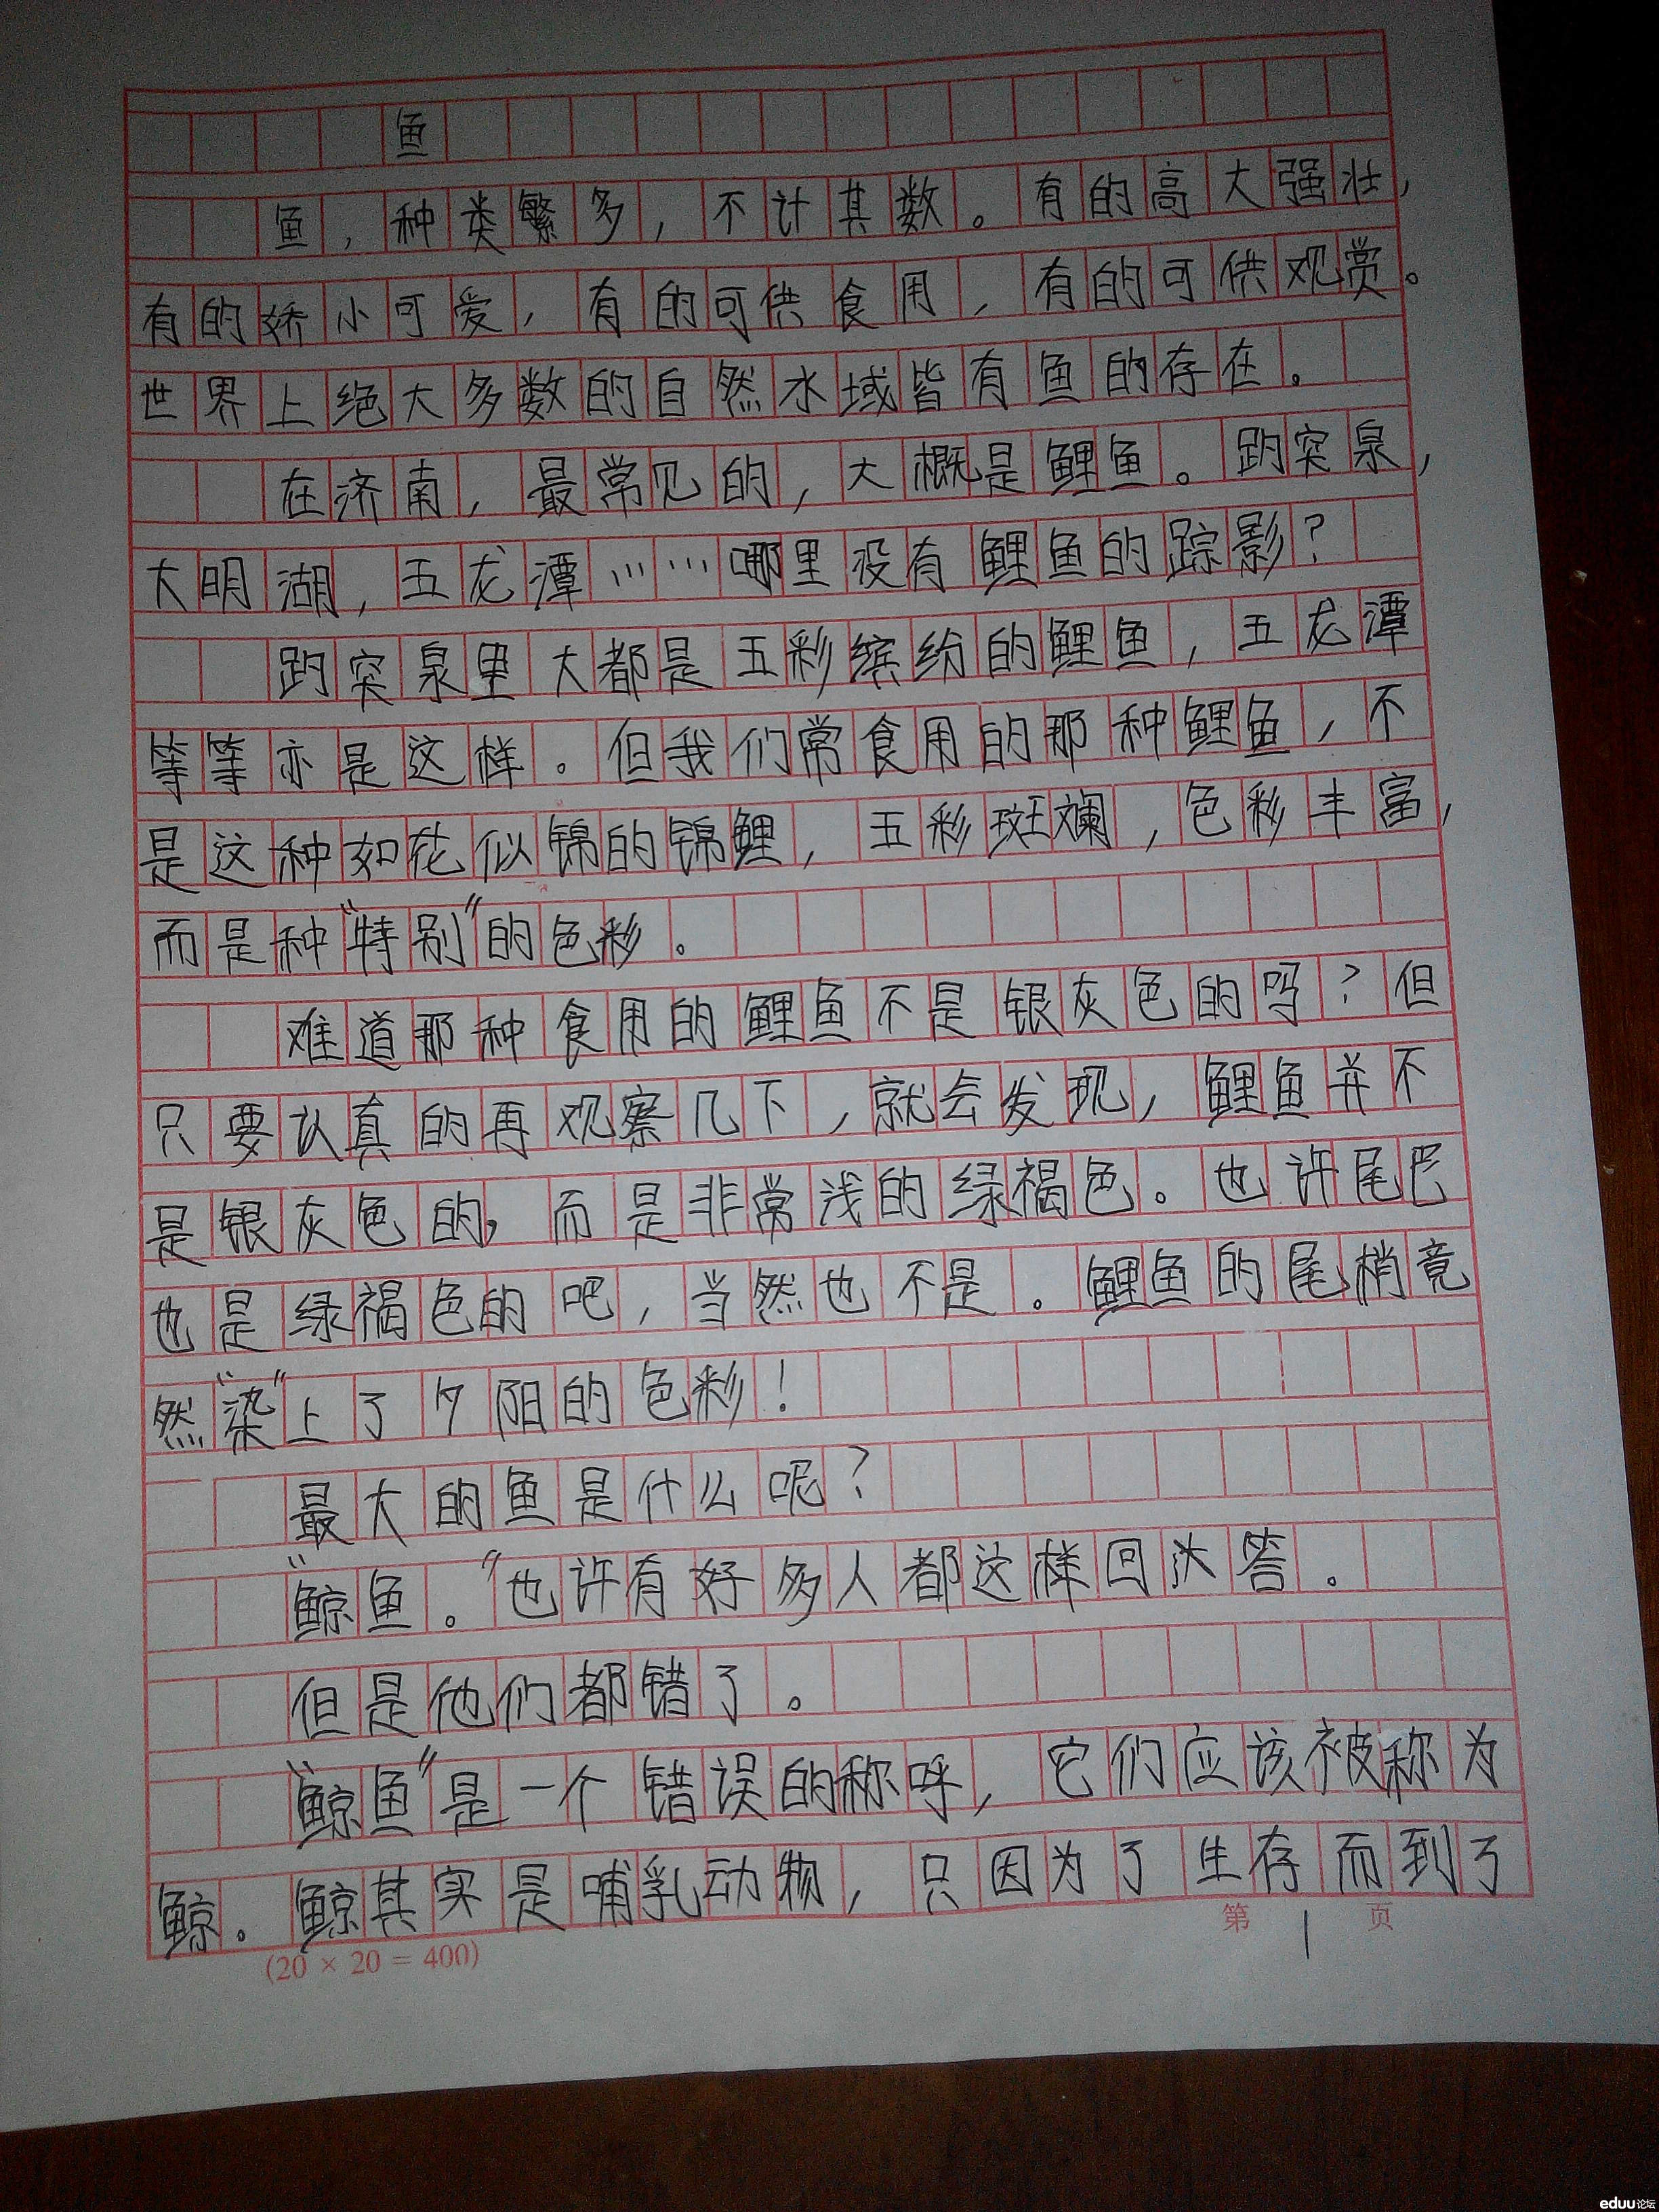 鱼
鱼，种类繁多，不计其数。有的高大强壮，
有的娇小可爱，有的可供食用，有的可供观赏。
世界上绝大多数的自然水域皆有鱼的存在。
在济南，最常见的，大概是鲤鱼。趵突泉，
大明湖，五龙潭……哪里没有鲤鱼的踪影？
趵突泉里大都是五彩缤纷的鲤鱼，五龙潭
等等亦是这样。但我们常食用的那种鲤鱼，不
是这种如花似锦的锦鲤，五彩斑斓，色彩丰富，
而是种“特别”的色彩。
难道那种食用的鲤鱼不是银灰色的吗？但
只要认真的再观察几下，就会发现，鲤鱼并不
是银灰色的，而是非常浅的绿褐色。也许尾巴
也是绿褐色的吧，当然也不是。鲤鱼的尾梢竟
然“染”上了夕阳的色彩！
最大的鱼是什么呢？
“鲸鱼。”也许有好多人都这样回答。
但是他们都错了。
“鲸鱼”是一个错误的称呼，它们应该被称为
鲸。鲸其实是哺乳动物，只因为了生存而到了
(20×20=400)
第1页
eduu论坛